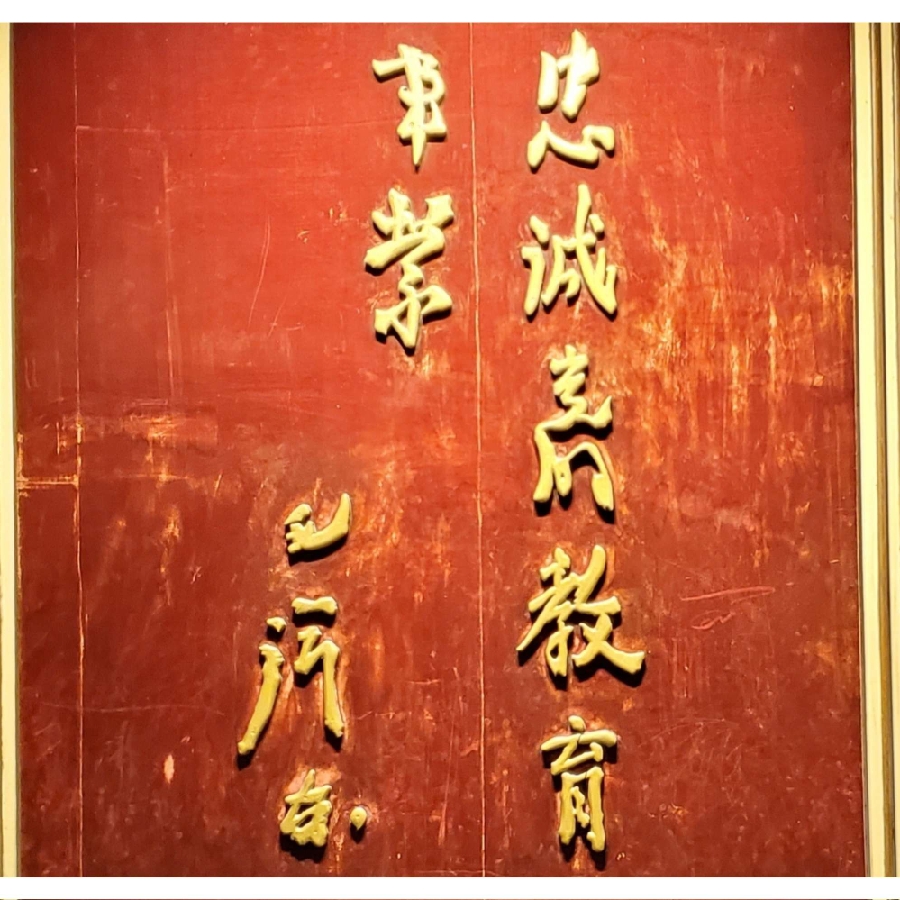 忠诚党的教育
事業
毛泽东